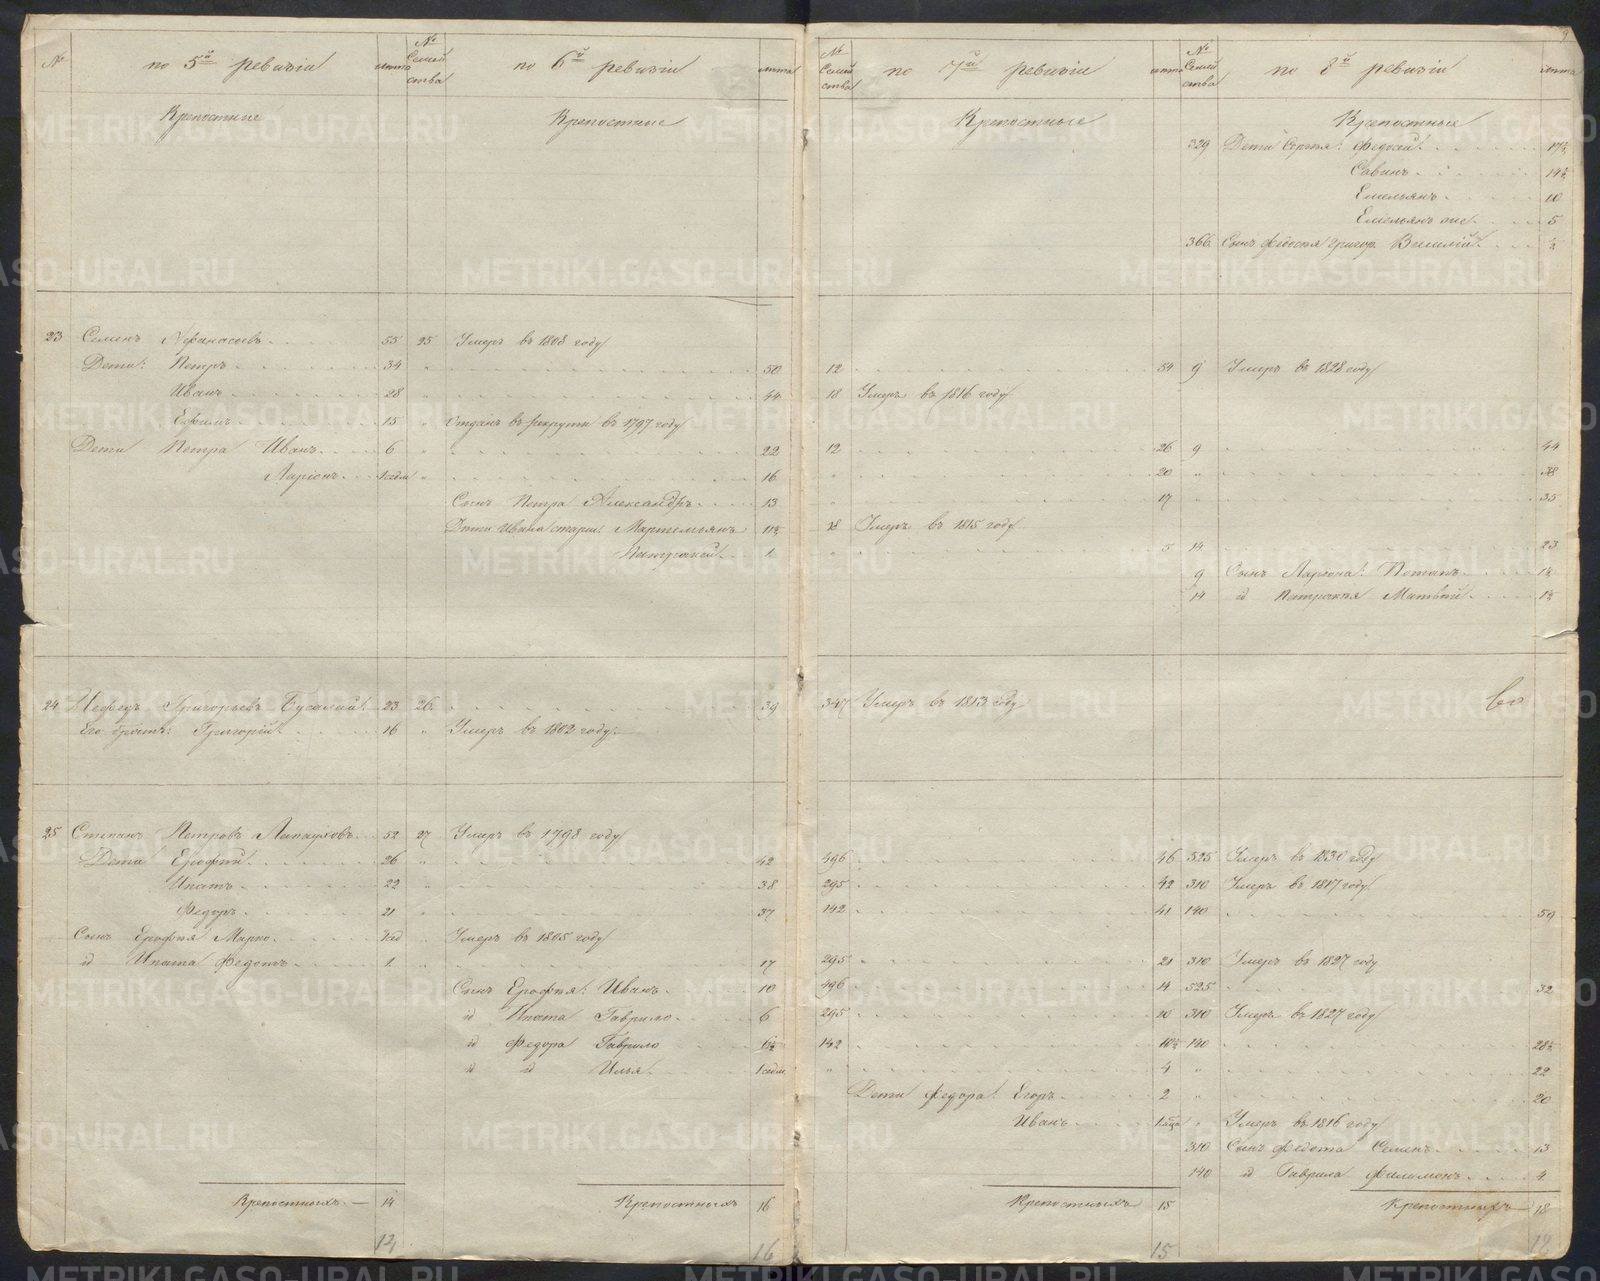 № по 5й ревизiи лѣта № Семейства по 6й ревизiи лѣта
Крепостные Крепостные
23 Семенъ Афанасьевъ 55 25 Умеръ въ 1808 году
Дети: Петръ 34 " 50
Иванъ 28 " 44
Ефимъ 15 " Отданъ въ рекруты въ 1797 году
Дети Петра Иванъ 6 " 22
Ларiонъ 1 недѣл " 16
Сынъ Петра Александръ 13
Дети Ивана старш: Мартемьянъ 11½
Патрикей 1
24 Мефодъ Григорьевъ 23 26 39
Его братъ: Григорiй 16 " Умеръ въ 1802 году
25 Степанъ Петровъ 52 27 Умеръ въ 1798 году
Дети Ерофѣй 26 " 42
Ипатъ 22 " 38
Федоръ 21 " 37
Сынъ Ерофѣя Марко " Умеръ въ 1805 году
id Ипата Федотъ 1 " 17
Сынъ Ерофѣя: Иванъ 10
id Ипата Гаврило 6
id Федора Гаврило 6½
id id Илья
Крепостныхъ 14 Крепостныхъ 16
14 16
№ Семейства по 7й ревизiи лѣта № Семейства по 8й ревизiи лѣта
9
Крепостные Крепостные
329 Дети Сергѣя: Федосей 17½
Савинъ 14½
Емельянъ 10
Емельянъ же 5
366 Сынъ Федосѣя Григор. Василiй ½
12 54 9 Умеръ въ 1828 году
18 Умеръ въ 1816 году
12 26 9 44
" 20 " 38
" 17 " 35
18 Умеръ въ 1815 году
" 5 14 23
9 Сынъ Ларiона: Потапъ 1½
14 id Патрикѣя Матвѣй 1½
347 Умеръ въ 1813 году
496 46 525 Умеръ въ 1830 году
295 42 310 Умеръ въ 1817 году
142 41 140 59
295 21 310 Умеръ въ 1827 году
496 14 525 32
295 10 310 Умеръ въ 1827 году
142 10½ 140 28½
" 4 " 22
Дети Федора: Егоръ 2 " 20
Иванъ " Умеръ въ 1816 году
310 Сынъ Федота Семенъ 13
140 id Гаврила Филимонъ 4
Крепостныхъ 15 Крепостныхъ 18
15
METRIKI.GASO-URAL.RU